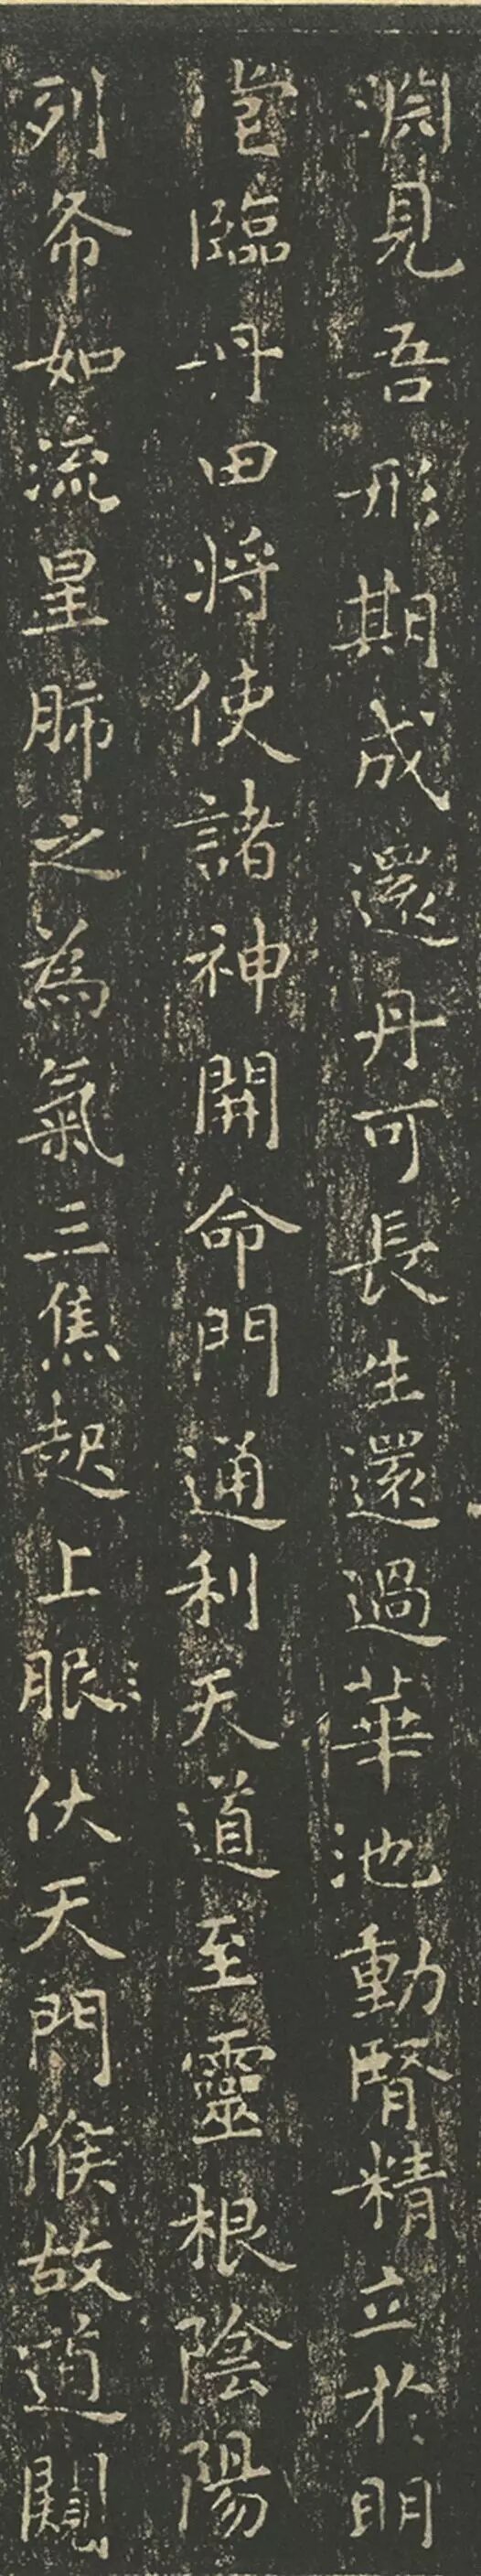 淵見吾形期成還丹可長生還過華池動腎精立於明
堂臨丹田將使諸神開命門通利天道至靈根陰陽
列布如流星肺之為氣三焦起上眼伏天門候故道闚